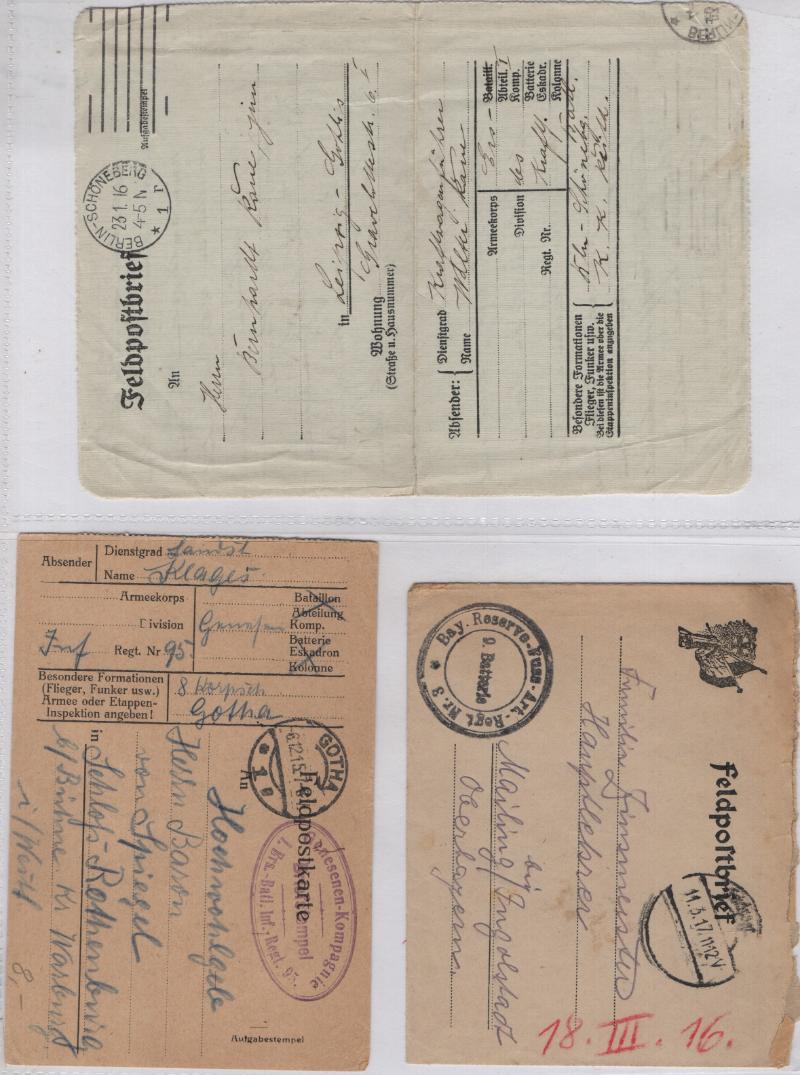 Feldpostbrief
BERLIN-SCHÖNEBERG
23.1.16
4-5 N
* 1 r
Aufgabestempel
An
Herrn
Bernhardt Kane jun
in Leipzig-Gohlis
Wohnung
(Straße u. Hausnummer)
Absender:
Dienstgrad Kraftwagenführer
Name Walter Kane
Armeekorps
Division
Regt. Nr.
Ers-
des
Kraftf.
Bataill.
Abteil. I
Komp.
Batterie
Eskadr.
Kolonne
Besondere Formationen
Flieger, Funker usw.
Bei diesen ist die Armee oder die
Etappeninspektion anzugeben
Bln-Schöneberg
Absender
Dienstgrad Landst
Name Klages
Armeekorps
Division
Inf Regt. Nr 95.
Genesen
Bataillon
Abteilung
Komp.
Batterie
Eskadron
Kolonne
Besondere Formationen
(Flieger, Funker usw.)
Armee oder Etappen-
Inspektion angeben!
Gotha
GOTHA
* 1 e
Feldpostkarte
An
Hochwohlgeb
Herrn Baron
von Spiegel
in Schloss-Rothenburg
b/Bühne Kr Warburg
i/Westf
8,-
Genesenen-Kompagnie
I. Ers.-Batl. Inf. Regt. 95.
Aufgabestempel
Feldpostbrief
11.3.17. 11-12V
Bay. Reserve-Fuss-Art.-Regt. Nr. 3 *
9. Batterie
Familie Zinsmeister
Hauptlehrer
Mailing bei Ingolstadt
Oberbayern
18. III. 16.